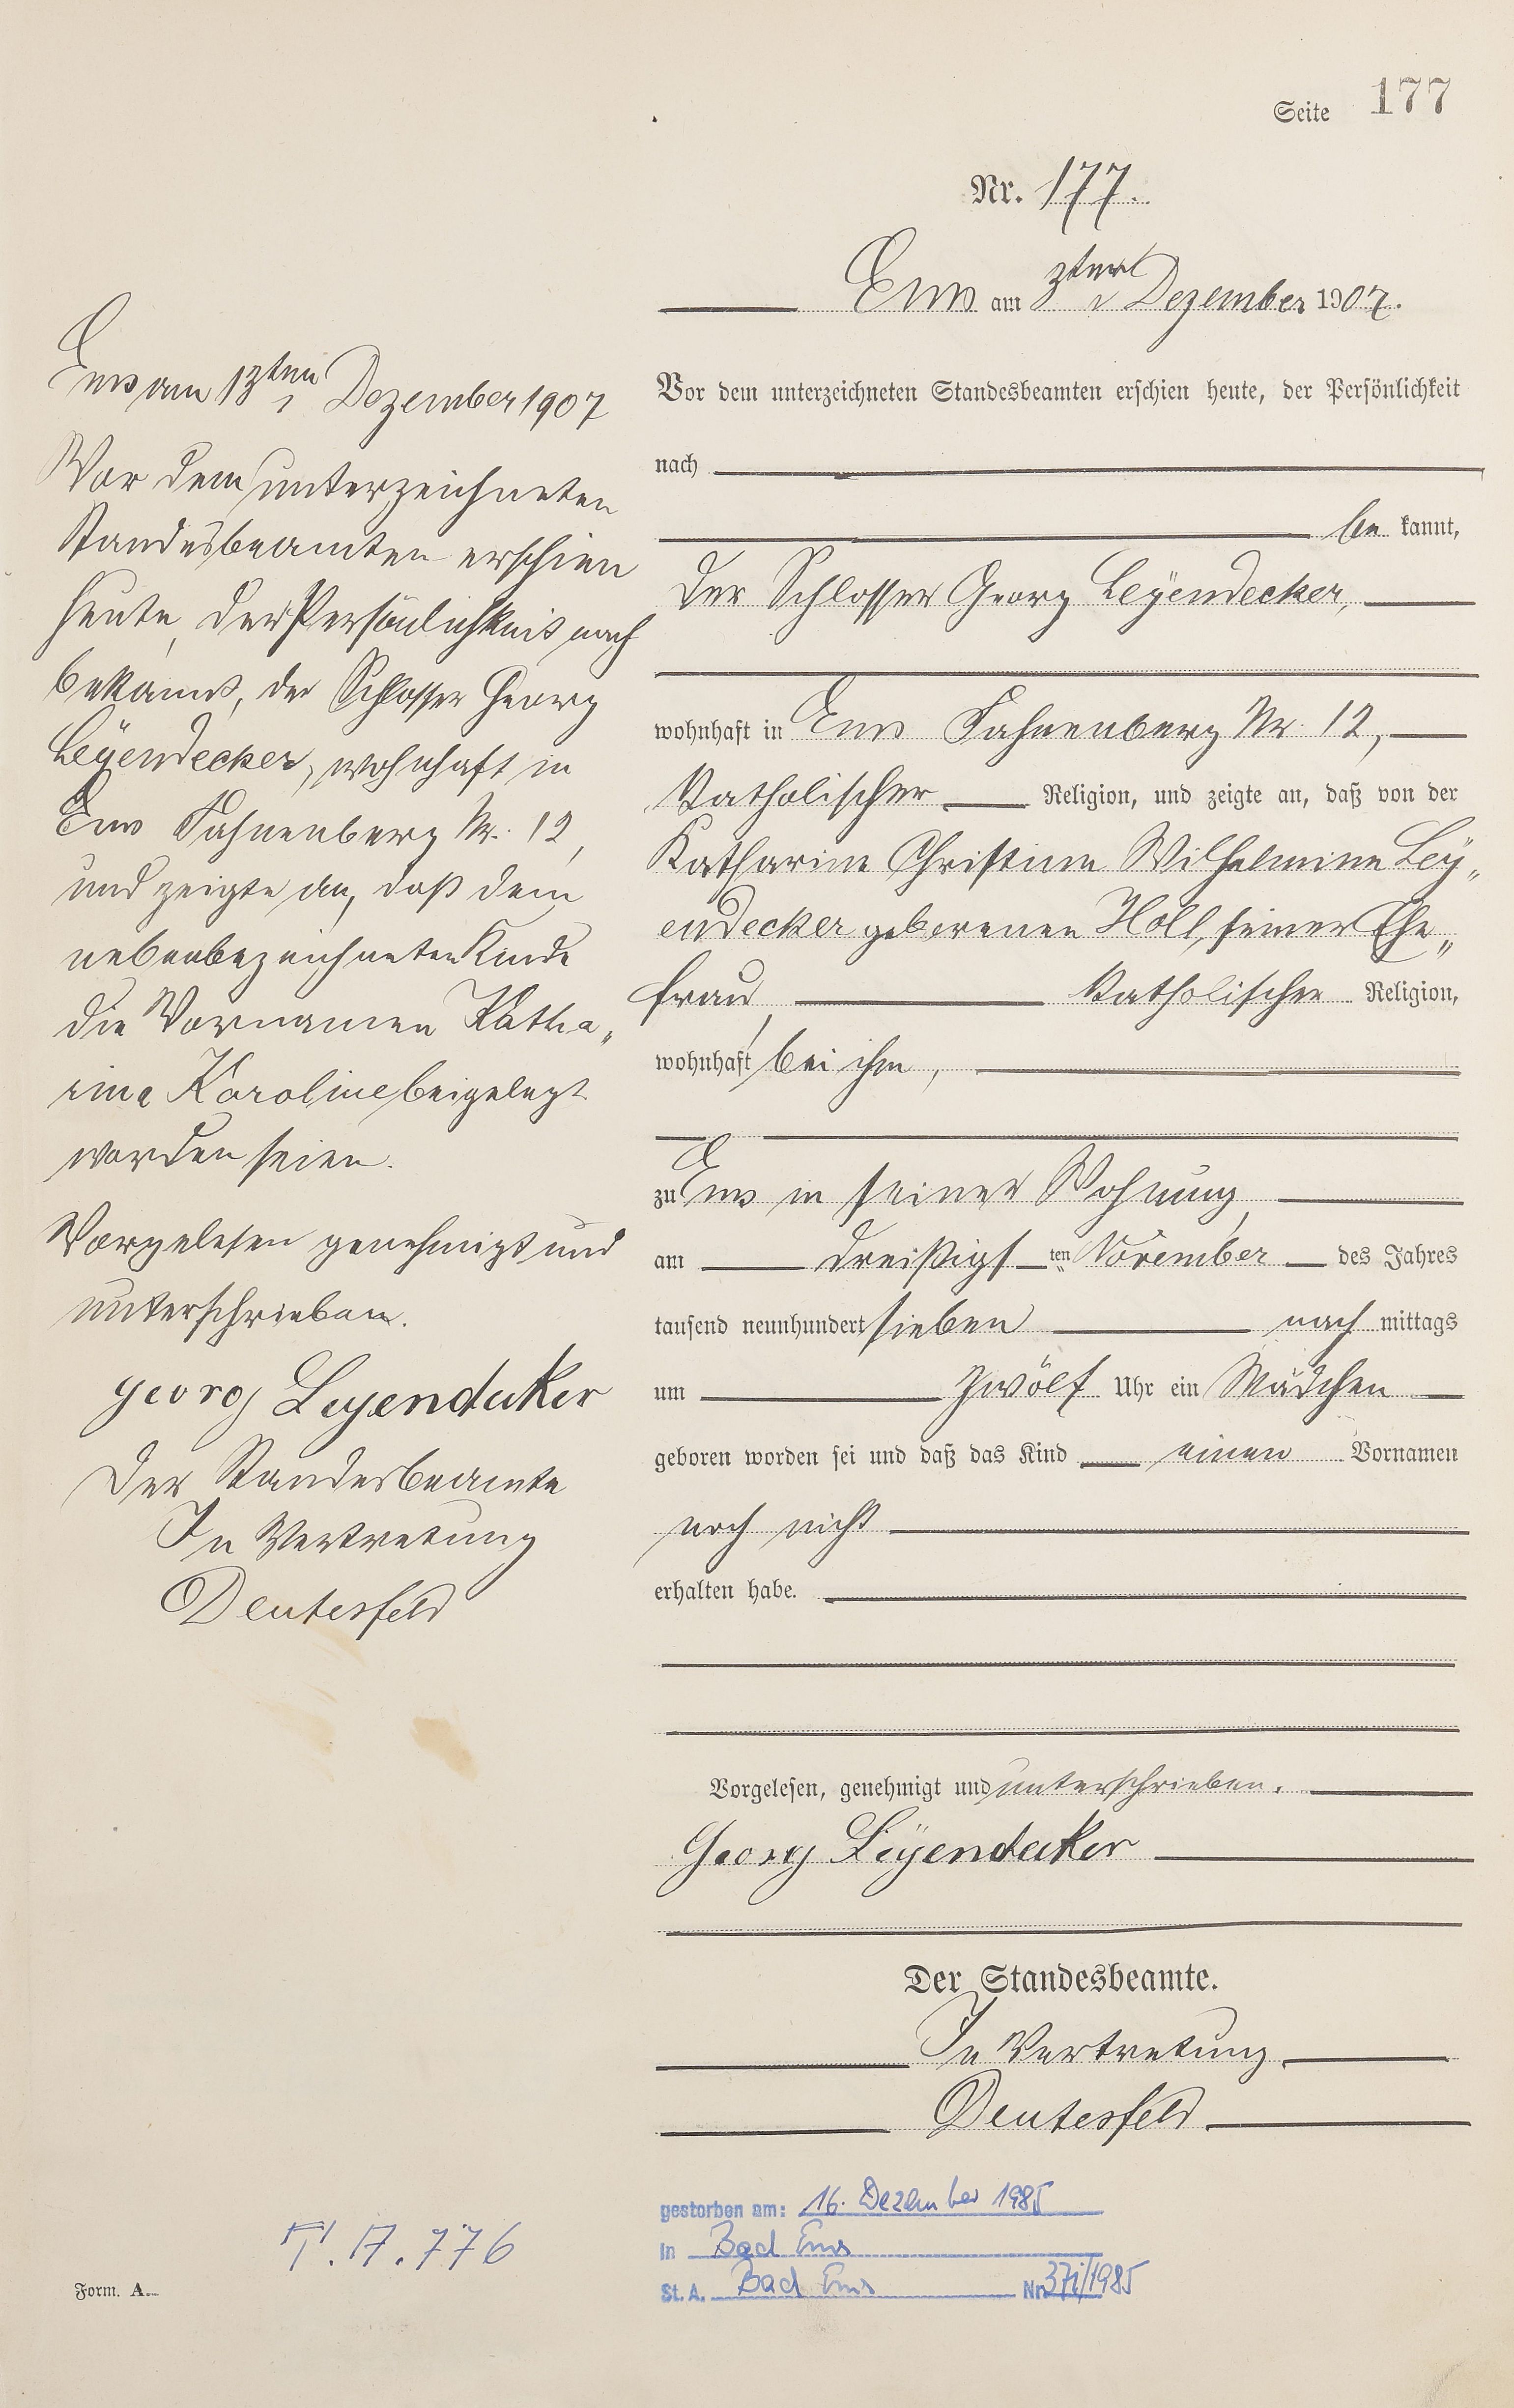 Seite 177
Nr. 177.
Ems am 3ten Dezember 1907.
Vor dem unterzeichneten Standesbeamten erschien heute, der Persönlichkeit
nach
be kannt,
der Schlosser Georg Leÿendecker,
wohnhaft in Ems Fahnenberg Nr. 12,
katholischer Religion, und zeigte an, daß von der
Katharine Christine Wilhelmine Leÿ„
endecker geborenen Holl, seiner Ehe„
frau, katholischer Religion,
wohnhaft bei ihm,
zu Ems in seiner Wohnung,
am dreißigsten November des Jahres
tausend neunhundert sieben nach mittags
um zwölf Uhr ein Mädchen
geboren worden sei und daß das Kind einen Vornamen
noch nicht
erhalten habe.
Vorgelesen, genehmigt und unterschrieben.
Georg Leÿendecker
Der Standesbeamte.
In Vertretung
Deutesfeld
Ems am 13ten Dezember 1907
Vor dem unterzeichneten
Standesbeamten erschien
heute, der Persönlichkeit nach
bekannt, der Schlosser Georg
Leÿendecker, wohnhaft in
Ems Fahnenberg Nr. 12,
und zeigte an, daß dem
nebenbezeichneten Kinde
die Vornamen Katha„
rina Karoline beigelegt
worden seien.
Vorgelesen genehmigt und
unterschrieben.
Georg Leyendecker
Der Standesbeamte
In Vertretung
Deutesfeld
gestorben am: 16. Dezember 1985
in Bad Ems
St. A. Bad Ems Nr. /1985
T. A. 776
Form. A.